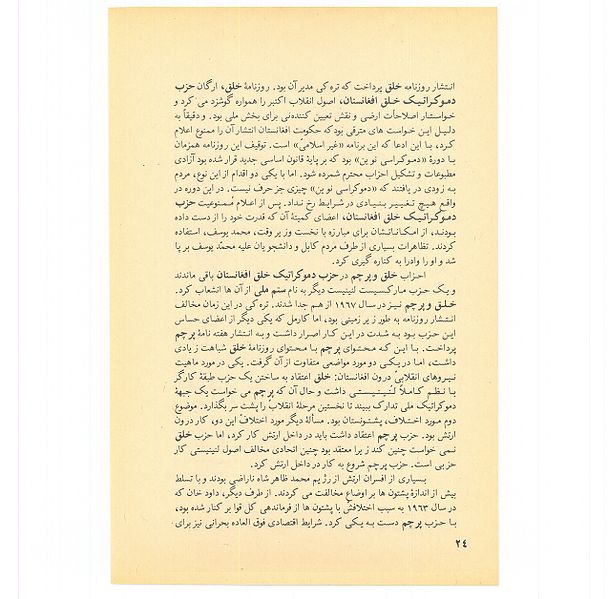 انتشار روزنامه خلق پرداخت که تره کی مدیر آن بود. روزنامهٔ خلق، ارگان حزب
دموکراتیک خلق افغانستان، اصول انقلاب اکتبر را همواره گوشزد می کرد و
خواستار اصلاحات ارضی و نقش تعیین کننده‌ئی برای بخش ملی بود. و دقیقاً به
دلیل این خواست های مترقی بود که حکومت افغانستان انتشار آن را ممنوع اعلام
کرد، با این ادعا که این برنامه «غیر اسلامی» است. توقیف این روزنامه همزمان
با دورهٔ «دموکراسی نوین» بود که بر پایهٔ قانون اساسی جدید قرار شده بود آزادی
مطبوعات و تشکیل احزاب محترم شمرده شود. اما با یکی دو اقدام از این نوع، مردم
به زودی دریافتند که «دموکراسی نوین» چیزی جز حرف نیست. در این دوره در
واقع هیچ تغییر بنیادی در شرایط رخ نداد. پس از اعلام ممنوعیت حزب
دموکراتیک خلق افغانستان، اعضای کمیتهٔ آن که قدرت خود را از دست داده
بودند، از امکاناتشان برای مبارزه با نخست وزیر وقت، محمد یوسف، استفاده
کردند. تظاهرات بسیاری از طرف مردم کابل و دانشجویان علیه محمّد یوسف بر پا
شد و او را وادار به کناره گیری کرد.
احزاب خلق و پرچم در حزب دموکراتیک خلق افغانستان باقی ماندند
و یک حزب مارکسیست لنینیست دیگر به نام ستم ملی از آن ها انشعاب کرد.
خلق و پرچم نیز در سال ۱۹۶۷ از هم جدا شدند. تره کی در این زمان مخالف
انتشار روزنامه به طور زیر زمینی بود، اما کارمل که یکی دیگر از اعضای حساس
این حزب بود به شدت در این کار اصرار داشت و به انتشار هفته نامهٔ پرچم
پرداخت. با این که محتوای پرچم با محتوای روزنامهٔ خلق شباهت زیادی
داشت، اما در یکی دو مورد مواضعی متفاوت از آن گرفت. یکی در مورد ماهیت
نیروهای انقلابی درون افغانستان: خلق اعتقاد به ساختن یک حزب طبقهٔ کارگر
با نظم کاملاً لنینیستی داشت و حال آن که پرچم می خواست یک جبههٔ
دموکراتیک ملی تدارک ببیند تا نخستین مرحلهٔ انقلاب را پشت سر بگذارد. موضوع
دوم مورد اختلاف، پشتونستان بود. مسألهٔ دیگر مورد اختلاف این دو، کار درون
ارتش بود. حزب پرچم اعتقاد داشت باید در داخل ارتش کار کرد، اما حزب خلق
نمی خواست چنین کند زیرا معتقد بود چنین اتحادی مخالف اصول لنینیستی کار
حزبی است. حزب پرچم شروع به کار در داخل ارتش کرد.
بسیاری از افسران ارتش از رژیم محمد ظاهر شاه ناراضی بودند و با تسلط
بیش از اندازهٔ پشتون ها بر اوضاع مخالفت می کردند. از طرف دیگر، داود خان که
در سال ۱۹۶۳ به سبب اختلافش با پشتون ها از فرماندهی کل قوا بر کنار شده بود،
با حزب پرچم دست به یکی کرد. شرایط اقتصادی فوق العاده بحرانی نیز برای
۲۴